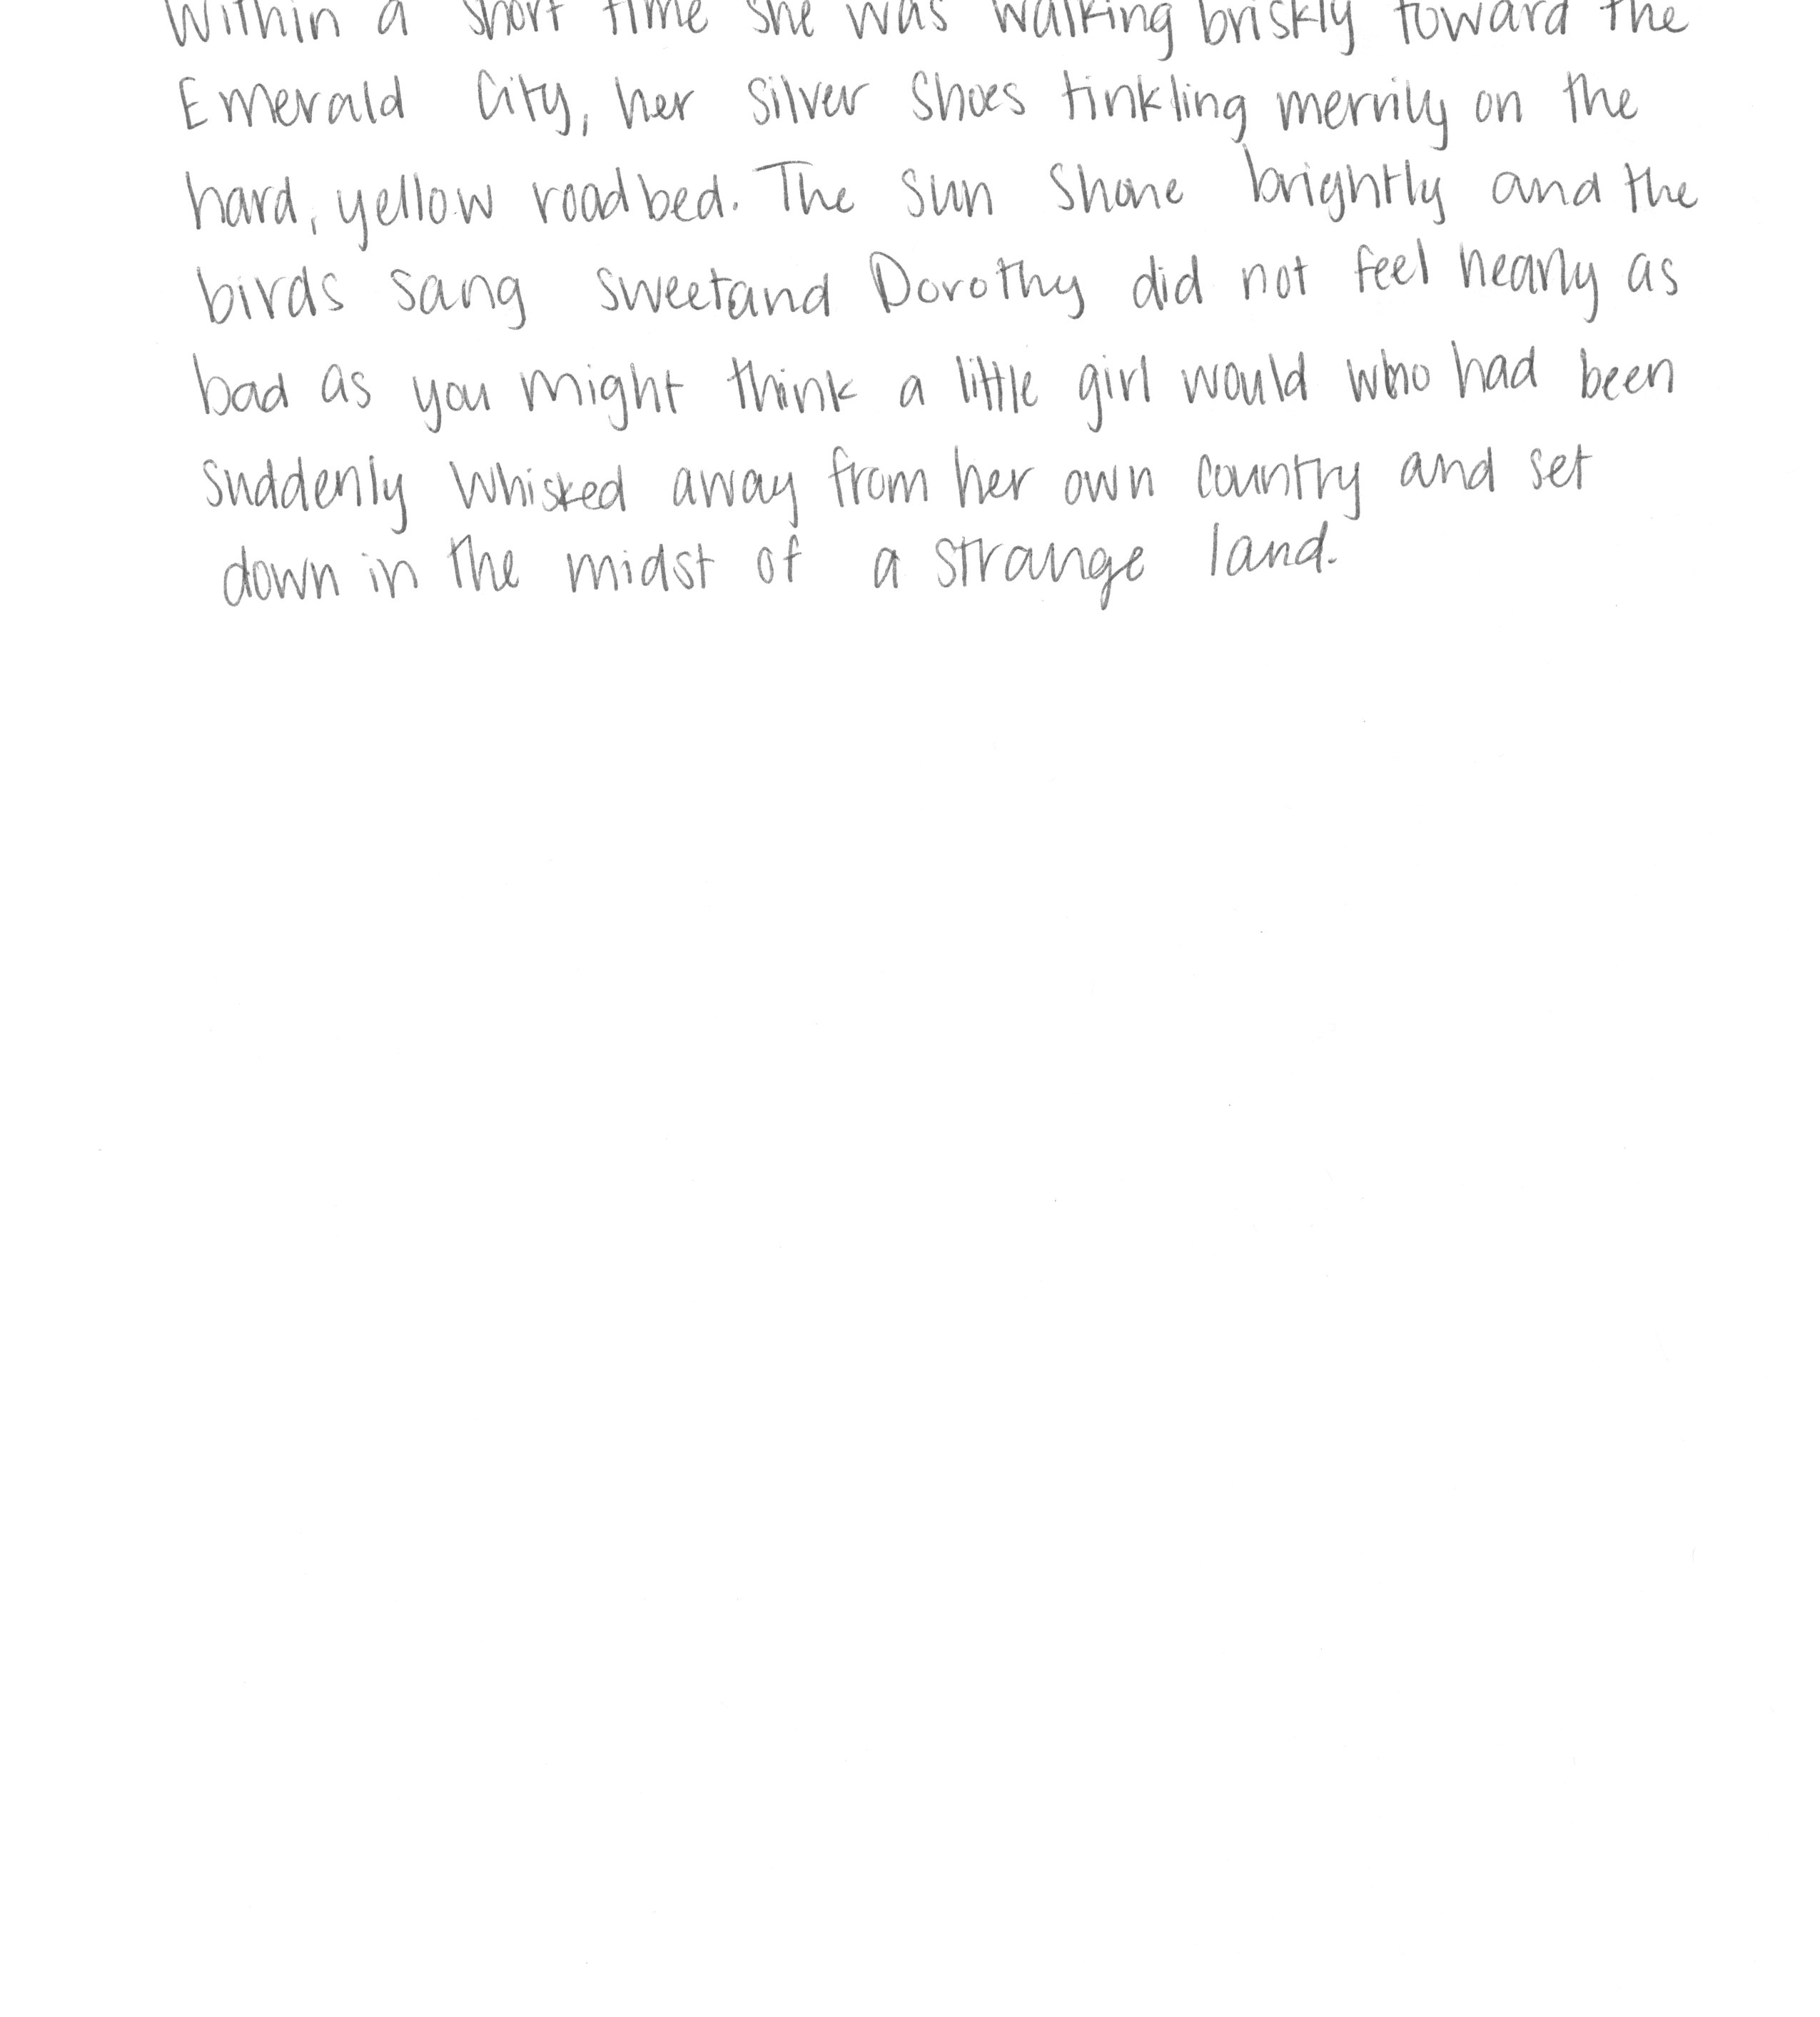 Within a short time she was walking briskly toward the
Emerald City, her silver Shoes tinkling merrily on the
hard, yellow roadbed. The sun shone brightly and the
birds sang sweetand Dorothy did not feel nearly as
bad as you might think a little girl would who had been
suddenly whisked away from her own country and set
down in the midst of a strange land.